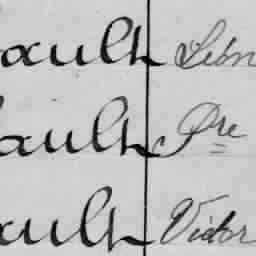 ault Léon
ault Pre
ault Victor